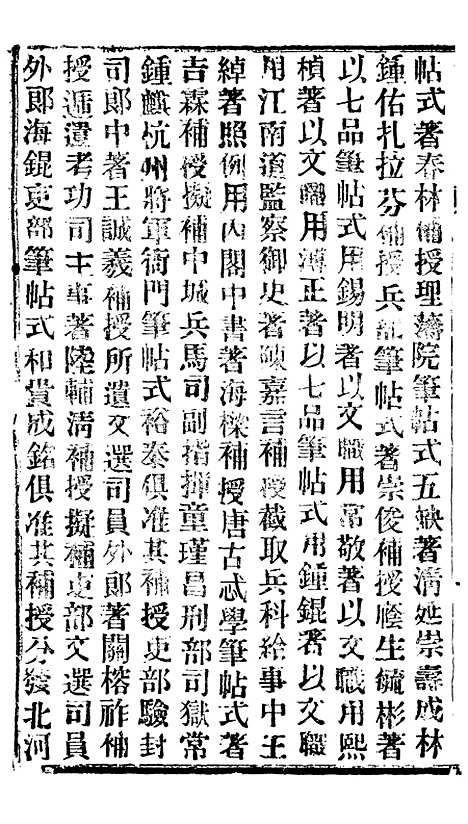 帖式著春林補授理藩院筆帖式五缺著清姓崇壽成林
鍾佑扎拉芬補授兵部筆帖式著崇俊補授廕生毓彬著
以七品筆帖式用錫明著以文職用常敬著以文職用熙
楨著以文職用溥正著以七品筆帖式用鍾錕著以文職
用江南道監察御史著陳嘉言補授截取兵科給事中王
綽著照例用內閣中書著海樑補授唐古忒學筆帖式著
吉霖補授擬補中城兵馬司副指揮童瑾昌刑部司獄常
鍾麒杭州將軍衙門筆帖式裕泰俱准其補授吏部驗封
司郎中著王誠義補授所遺文選司員外郎著關榕祚補
授遞遺考功司主事著陸輔清補授擬補吏部文選司員
外郎海錕吏部筆帖式和貴成銘俱准其補授分發北河